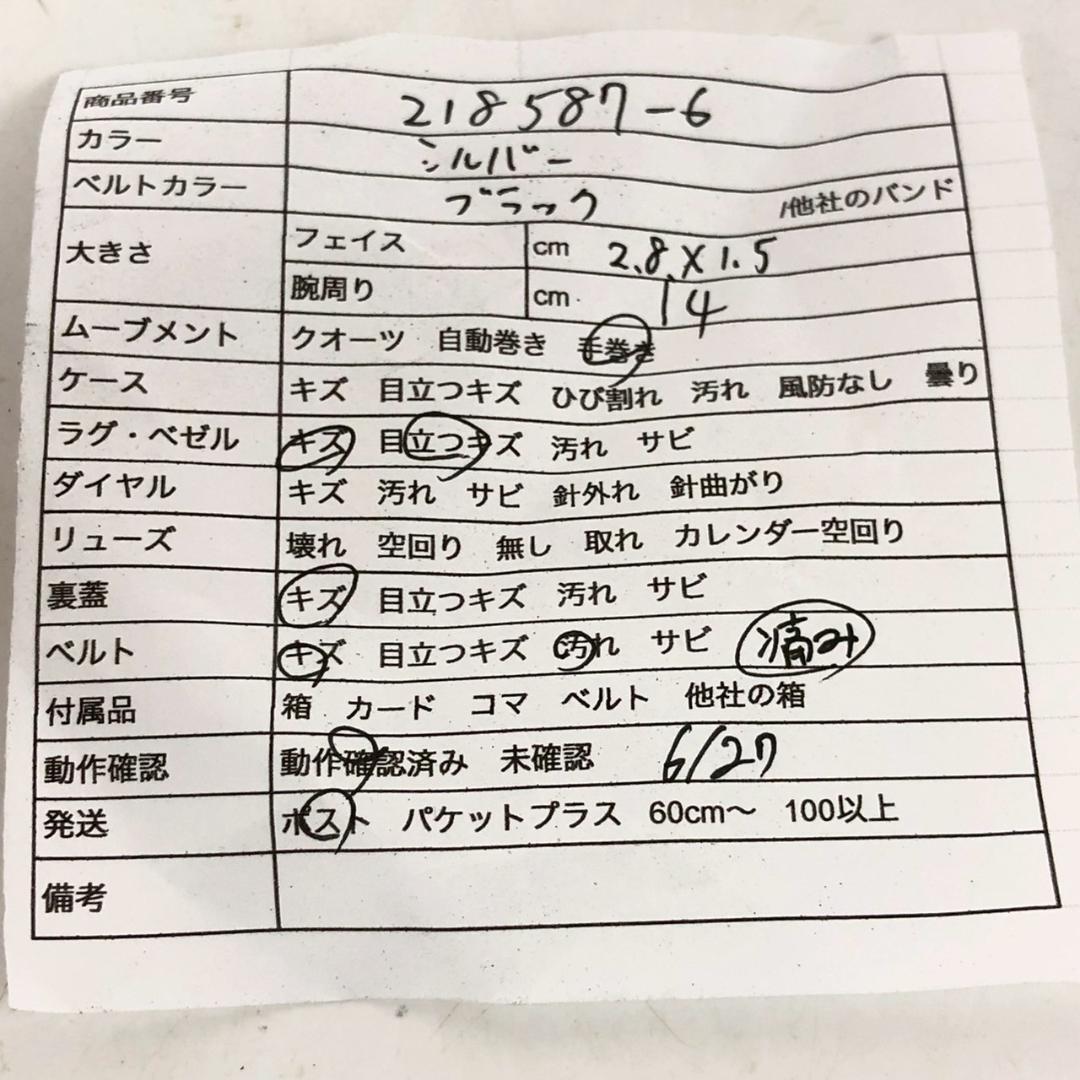 商品番号 218587-6
カラー シルバー
ベルトカラー ブラック /他社のバンド
大きさ フェイス cm 2.8×1.5
腕周り cm 14
ムーブメント クオーツ 自動巻き 手巻き
ケース キズ 目立つキズ ひび割れ 汚れ 風防なし 曇り
ラグ・ベゼル キズ 目立つキズ 汚れ サビ
ダイヤル キズ 汚れ サビ 針外れ 針曲がり
リューズ 壊れ 空回り 無し 取れ カレンダー空回り
裏蓋 キズ 目立つキズ 汚れ サビ
ベルト キズ 目立つキズ 汚れ サビ 痛み
付属品 箱 カード コマ ベルト 他社の箱
動作確認 動作確認済み 未確認 6/27
発送 ポスト パケットプラス 60cm～ 100以上
備考